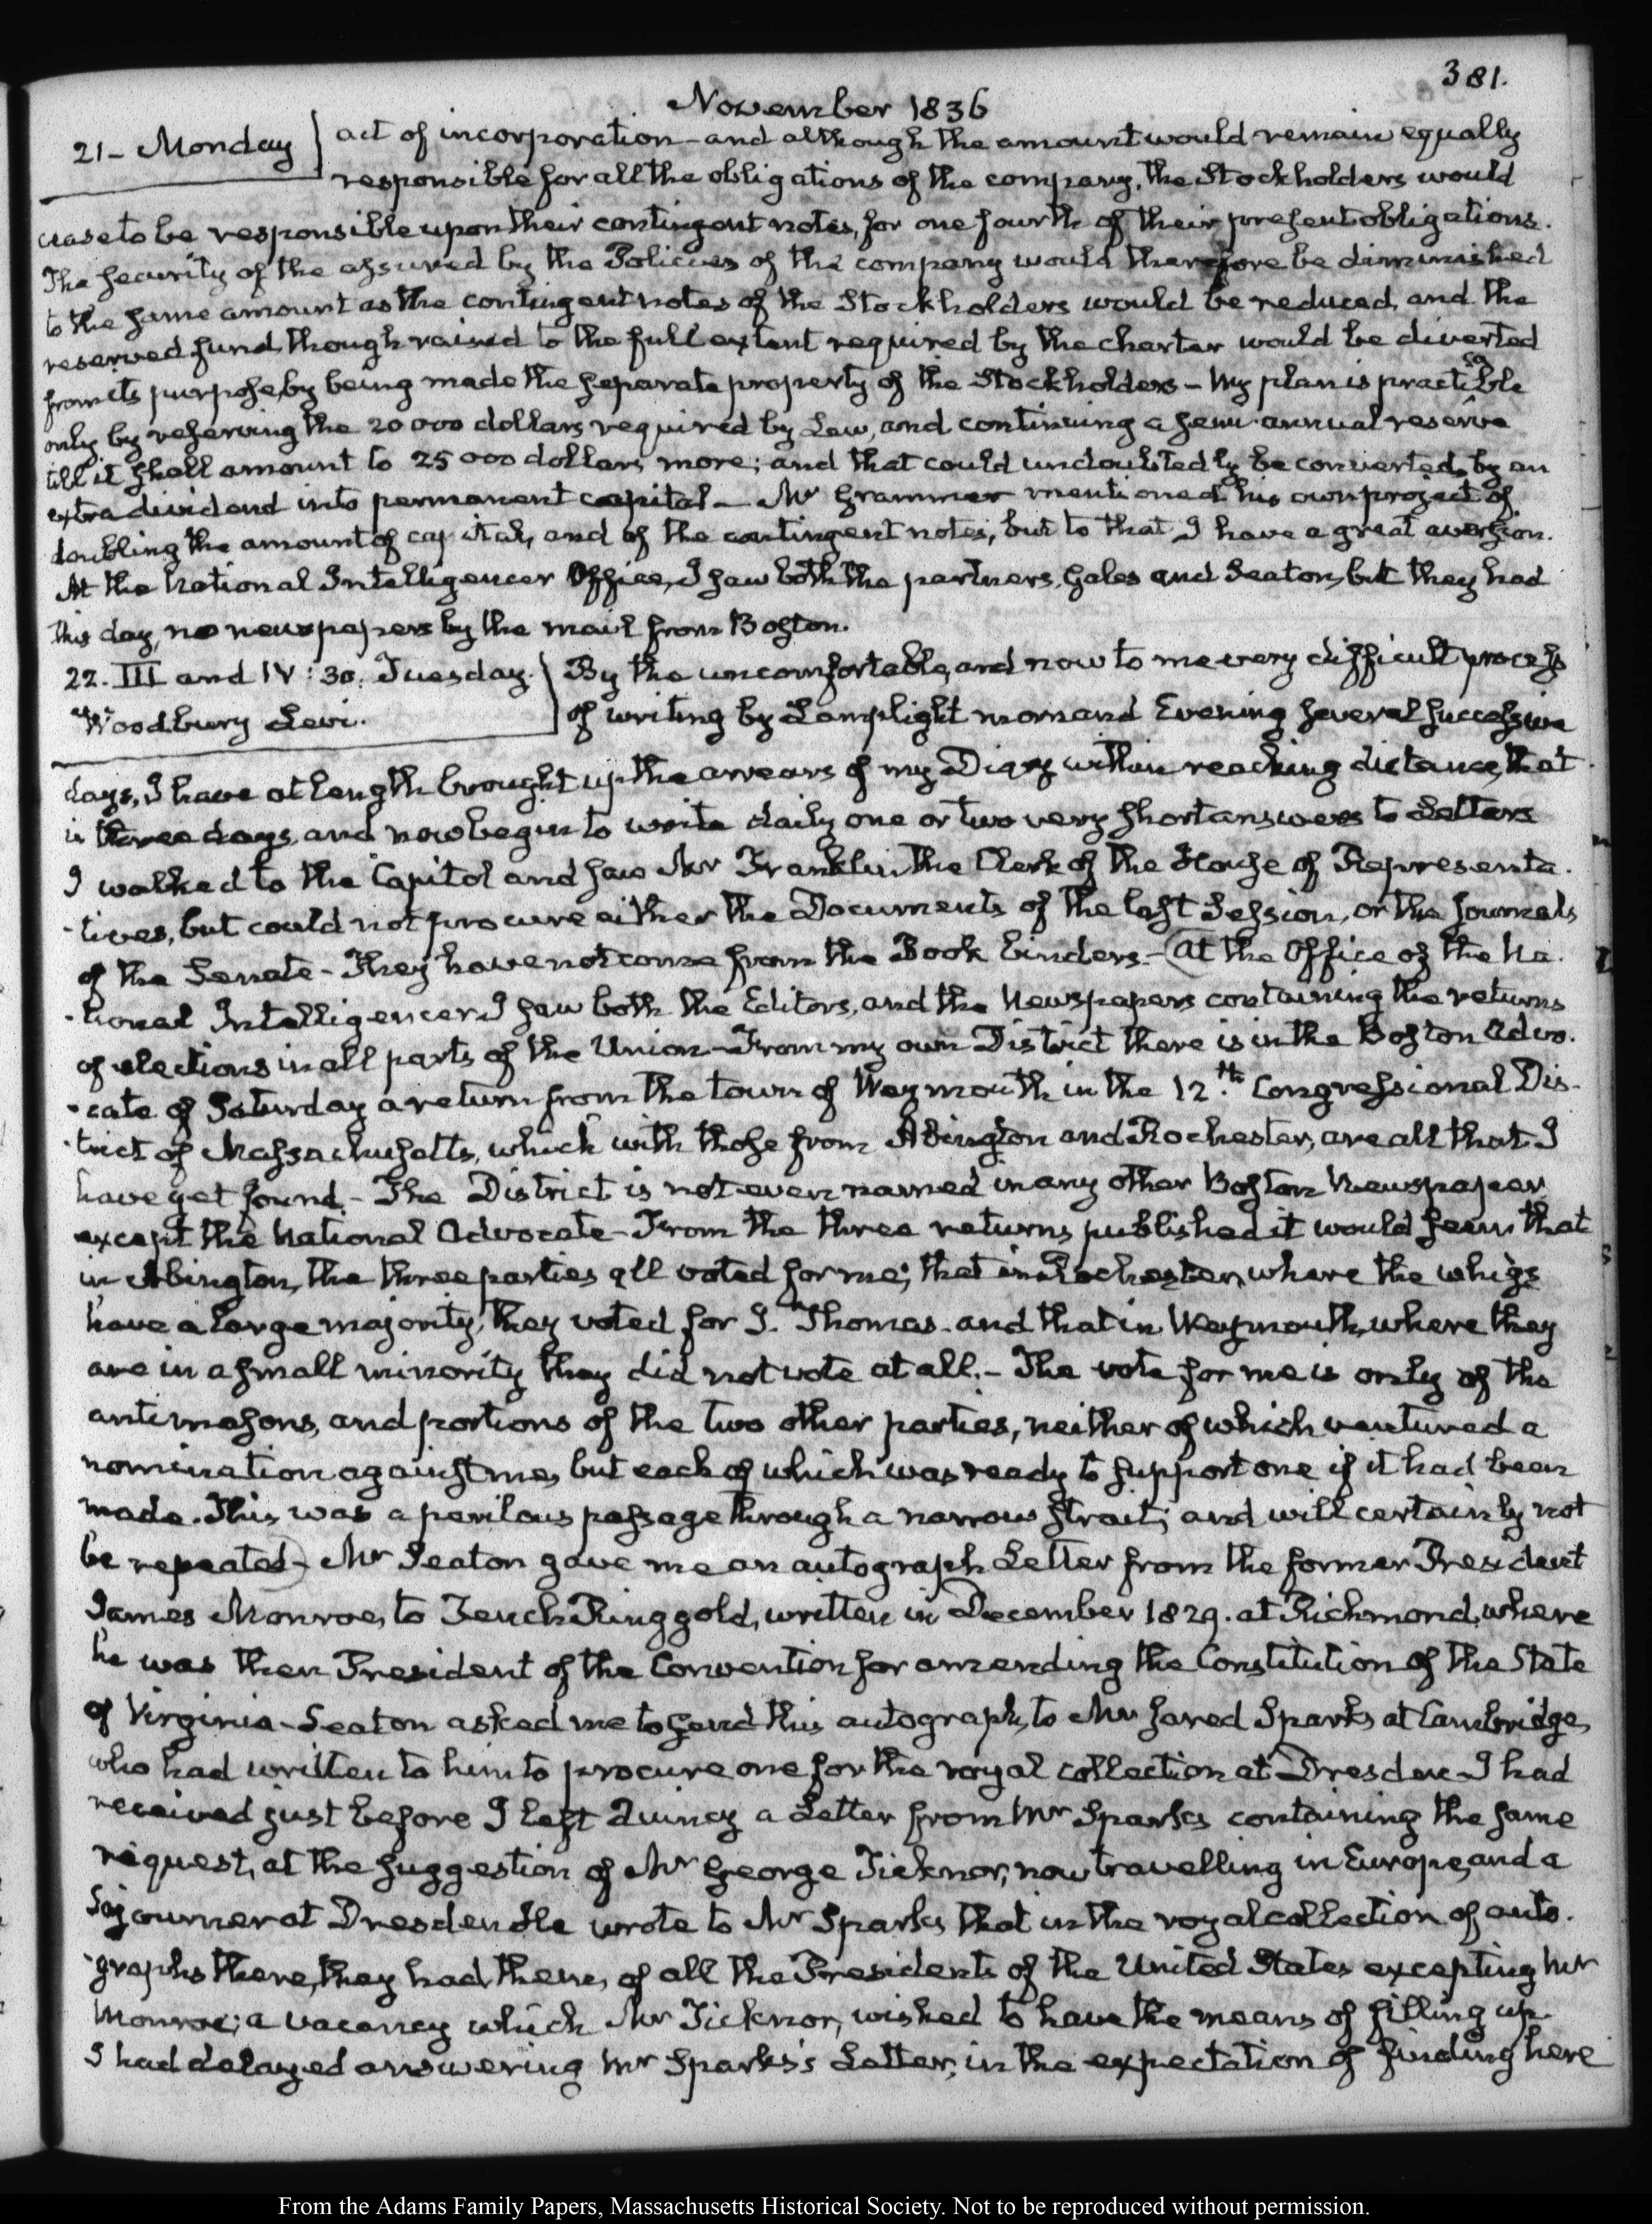 381.
November 1836
21 - Monday
act of incorporation - and although the amount would remain equally
responsible for all the obligations of the company, the Stockholders would
cease to be responsible upon their contingent notes, for one fourth of their present obligations.
The security of the assured by the Policies of the company would therefore be diminished
to the same amount as the contingent notes of the Stockholders would be reduced, and the
reserved fund, though raised to the full extent required by the charter would be diverted
from its purpose, by being made the separate property of the Stockholders - My plan is practicable
only by reserving the 20 000 dollars required by Law, and continuing a semi-annual reserve
till it shall amount to 25 000 dollars more; and that could undoubtedly be converted by an
extra dividend into permanent capital - Mr Grammer mentioned his own project of
doubling the amount of capital, and of the contingent notes; but to that I have a great aversion.
At the National Intelligencer Office, I saw both the partners, Gales and Seaton, but they had
this day, no newspapers by the mail from Boston.
22. III and IV: 30. Tuesday.
Woodbury Levi.
By the uncomfortable, and now to me very difficult process
of writing by Lamplight morn and Evening several successive
days, I have at length brought up the arrears of my Diary within reaching distance, that
is three days, and now begin to write daily one or two very short answers to Letters
I walked to the Capitol and saw Mr Franklin the Clerk of the House of Representa-
-tives, but could not procure either the Documents of the last Session, or the Journals
of the Senate - They have not come from the Book binders - At the Office of the Na-
-tional Intelligencer I saw both the Editors, and the Newspapers containing the returns
of elections in all parts of the Union - From my own District there is in the Boston Advo-
-cate of Saturday a return from the town of Weymouth in the 12.th Congressional Dis-
-trict of Massachusetts, which with those from Abington and Rochester, are all that I
have yet found. - The District is not even named in any other Boston Newspaper
except the National Advocate - From the three returns published it would seem that
in Abington, the three parties all voted for me; that in Rochester, where the whigs
have a large majority, they voted for I. Thomas. and that in Weymouth, where they
are in a small minority they did not vote at all. - The vote for me is only of the
antimasons, and portions of the two other parties, neither of which ventured a
nomination against me, but each of which was ready to support one if it had been
made. This was a perilous passage through a narrow strait; and will certainly not
be repeated - Mr Seaton gave me an autograph Letter from the former President
James Monroe, to Tench Ringgold, written in December 1829. at Richmond, where
he was then President of the Convention for amending the Constitution of the State
of Virginia - Seaton asked me to send this autograph, to Mr Jared Sparks at Cambridge,
who had written to him to procure one for the royal collection at Dresden - I had
received just before I left Quincy a Letter from Mr Sparks containing the same
request, at the suggestion of Mr George Ticknor, now travelling in Europe, and a
Sojourner at Dresden. He wrote to Mr Sparks that in the royal collection of auto-
-graphs there, they had them, of all the Presidents of the United States excepting Mr
Monroe; a vacancy which Mr Ticknor, wished to have the means of filling up.
I had delayed answering Mr Sparks's Letter, in the expectation of finding here
From the Adams Family Papers, Massachusetts Historical Society. Not to be reproduced without permission.